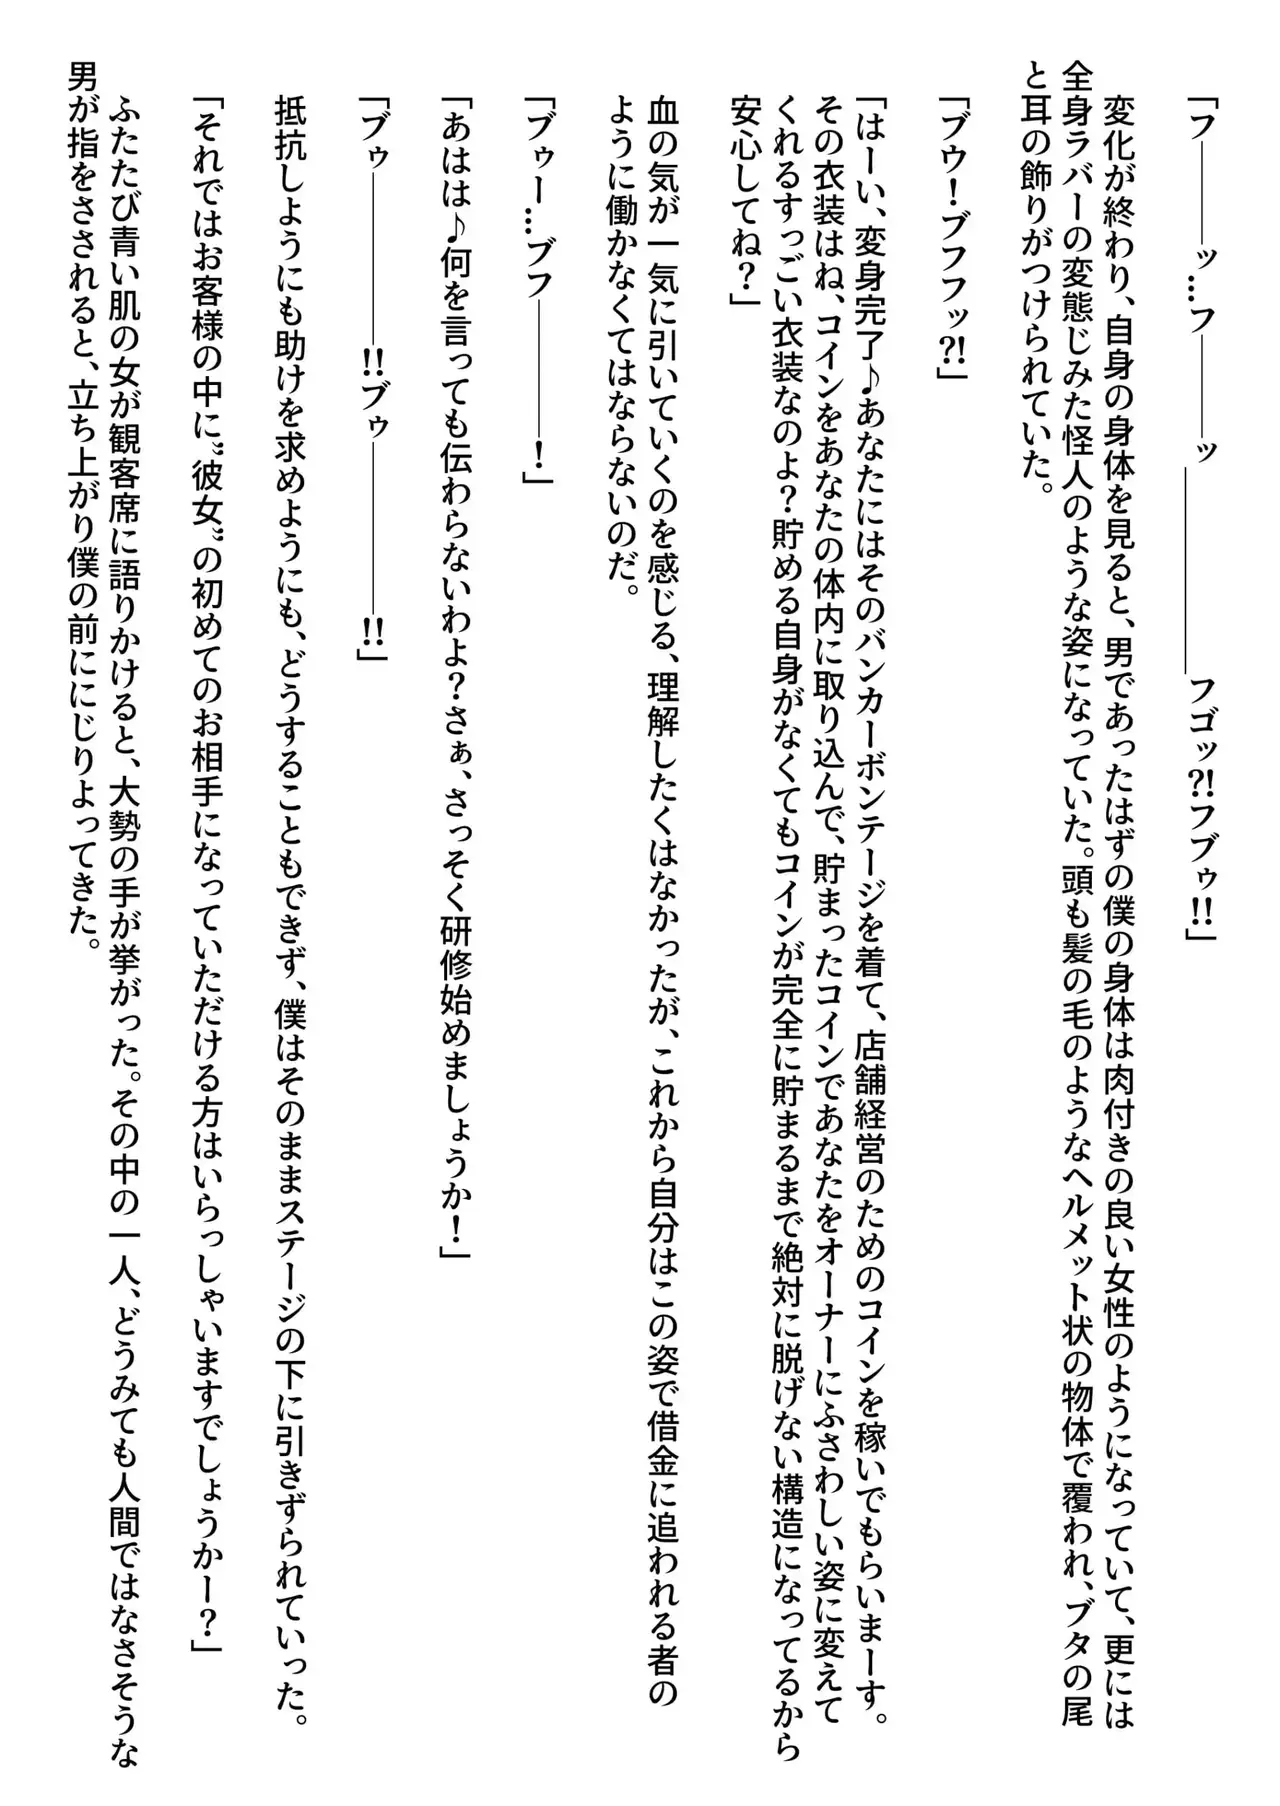 「フ――――ッ…フ――――ッ ――――――――フゴッ?!フブゥ!!」
変化が終わり、自身の身体を見ると、男であったはずの僕の身体は肉付きの良い女性のようになっていて、更には
全身ラバーの変態じみた怪人のような姿になっていた。頭も髪の毛のようなヘルメット状の物体で覆われ、ブタの尾
と耳の飾りがつけられていた。
「ブウ!ブフフッ?!」
「はーい、変身完了♪あなたにはそのバンカーボンテージを着て、店舗経営のためのコインを稼いでもらいまーす。
その衣装はね、コインをあなたの体内に取り込んで、貯まったコインであなたをオーナーにふさわしい姿に変えて
くれるすっごい衣装なのよ?貯める自身がなくてもコインが完全に貯まるまで絶対に脱げない構造になってるから
安心してね?」
血の気が一気に引いていくのを感じる、理解したくはなかったが、これから自分はこの姿で借金に追われる者の
ように働かなくてはならないのだ。
「ブゥー…ブフ――――――!」
「あはは♪何を言っても伝わらないわよ?さぁ、さっそく研修始めましょうか!」
「ブゥ――――――!!ブゥ――――――!!」
抵抗しようにも助けを求めようにも、どうすることもできず、僕はそのままステージの下に引きずられていった。
「それではお客様の中に〝彼女〟の初めてのお相手になっていただける方はいらっしゃいますでしょうかー?」
ふたたび青い肌の女が観客席に語りかけると、大勢の手が挙がった。その中の一人、どうみても人間ではなさそうな
男が指をさされると、立ち上がり僕の前ににじりよってきた。